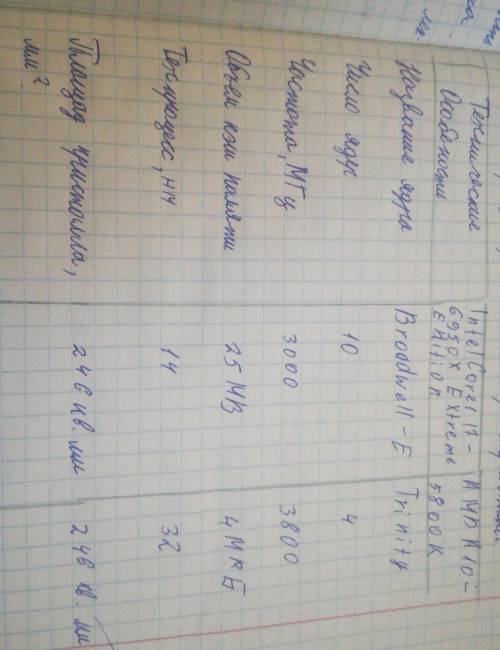 Технические Особености
Intel Core i7-6950X Extreme Edition
AMD A10-5800K
Название ядра
Broadwell-E
Trinity
Число ядр
10
4
Частота, МГц
3000
3800
Объем кэш памяти
25 MB
4 МКБ
Техпроцесс, нм
14
32
Площад кристалла, мм²
246 кв. мм
246 кв. мм